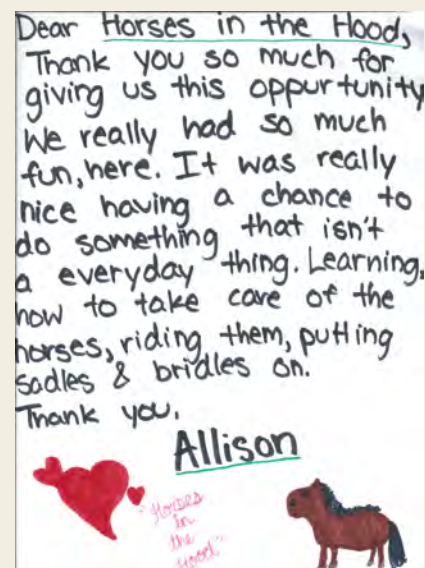 Dear Horses in the Hood,
Thank you so much for
giving us this oppurtunity
We really had so much
fun, here. It was really
nice having a chance to
do something that isn't
a everyday thing. Learning,
how to take care of the
horses, riding them, putting
sadles & bridles on.
Thank you,
Allison
"Horses
in
the
Hood"